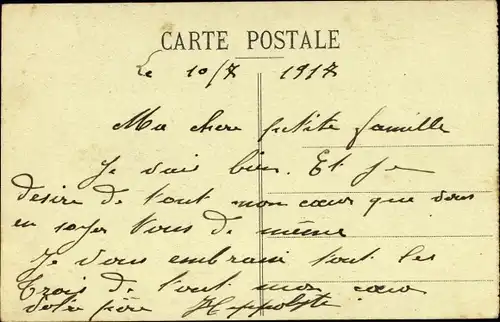 CARTE POSTALE
Le 10/7 1917
Ma chere petite famille
Je vais bien. Et je
desire de tout mon cœur que vous
en soyez tous de même
Je vous embrasse tout les
trois de tout mon cœur
Votre père Hyppolyte